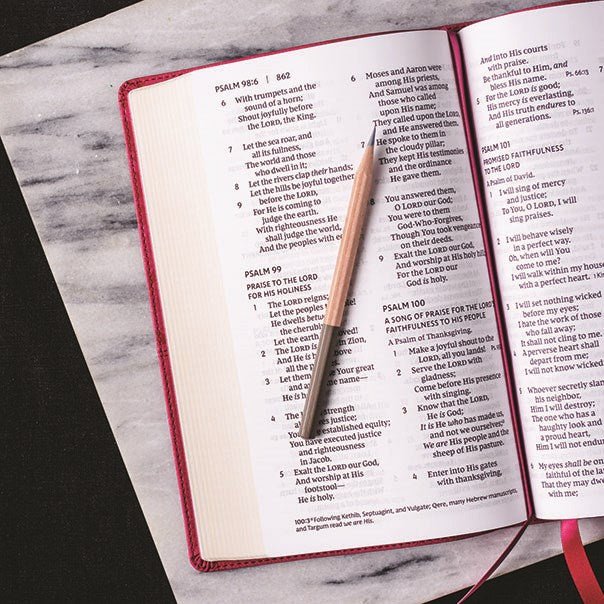 PSALM 98:6 | 862
6 With trumpets and the
sound of a horn;
Shout joyfully before
the LORD, the King.
7 Let the sea roar, and
all its fullness,
The world and those
who dwell in it;
8 Let the rivers clap their hands;
Let the hills be joyful together
9 before the LORD,
For He is coming to
judge the earth.
With righteousness He
shall judge the world,
And the peoples with
PSALM 99
PRAISE TO THE LORD
FOR HIS HOLINESS
1 The LORD reigns;
Let the peoples
He dwells
the cherubim
Let the earth
2 The LORD is in Zion,
And He is
all the
3 Let them Your great
and name—
He is
4 The strength
justice;
You established equity;
You have executed justice
and righteousness
in Jacob.
5 Exalt the LORD our God,
And worship at His
footstool—
He is holy.
6 Moses and Aaron were
among His priests,
And Samuel was among
those who called
upon His name;
They called upon the LORD,
and He answered them.
7 He spoke to them in
the cloudy pillar;
They kept His testimonies
and the ordinance
He gave them.
8 You answered them,
O LORD our God;
You were to them
God-Who-Forgives,
Though You took vengeance
on their deeds.
9 Exalt the LORD our God,
And worship at His holy hill;
For the LORD our
God is holy.
PSALM 100
A SONG OF PRAISE FOR THE LORD'S
FAITHFULNESS TO HIS PEOPLE
A Psalm of Thanksgiving.
1 Make a joyful shout to the
LORD, all you lands!
2 Serve the LORD with
gladness;
Come before His presence
with singing.
3 Know that the LORD,
He is God;
It is He who has made us,
and not we ourselves;
We are His people and the
sheep of His pasture.
4 Enter into His gates
with thanksgiving,
100:3 Following Kethib, Septuagint, and Vulgate; Qere, many Hebrew manuscripts,
and Targum read we are His.
And into His courts
with praise.
Be thankful to Him, and
bless His name.
5 For the LORD is good;
His mercy is everlasting,
And His truth endures to
all generations.
PSALM 101
PROMISED FAITHFULNESS
TO THE LORD
A Psalm of David.
1 I will sing of mercy
and justice;
To You, O LORD, I will
sing praises.
2 I will behave wisely
in a perfect way.
Oh, when will You
come to me?
I will walk within my house
with a perfect heart.
3 I will set nothing wicked
before my eyes;
I hate the work of those
who fall away;
It shall not cling to me.
4 A perverse heart shall
depart from me;
I will not know wicked
5 Whoever secretly slan
his neighbor,
Him I will destroy;
The one who has a
haughty look and
a proud heart,
Him I will not endure
6 My eyes shall be on
faithful of the la
That they may dwe
with me;